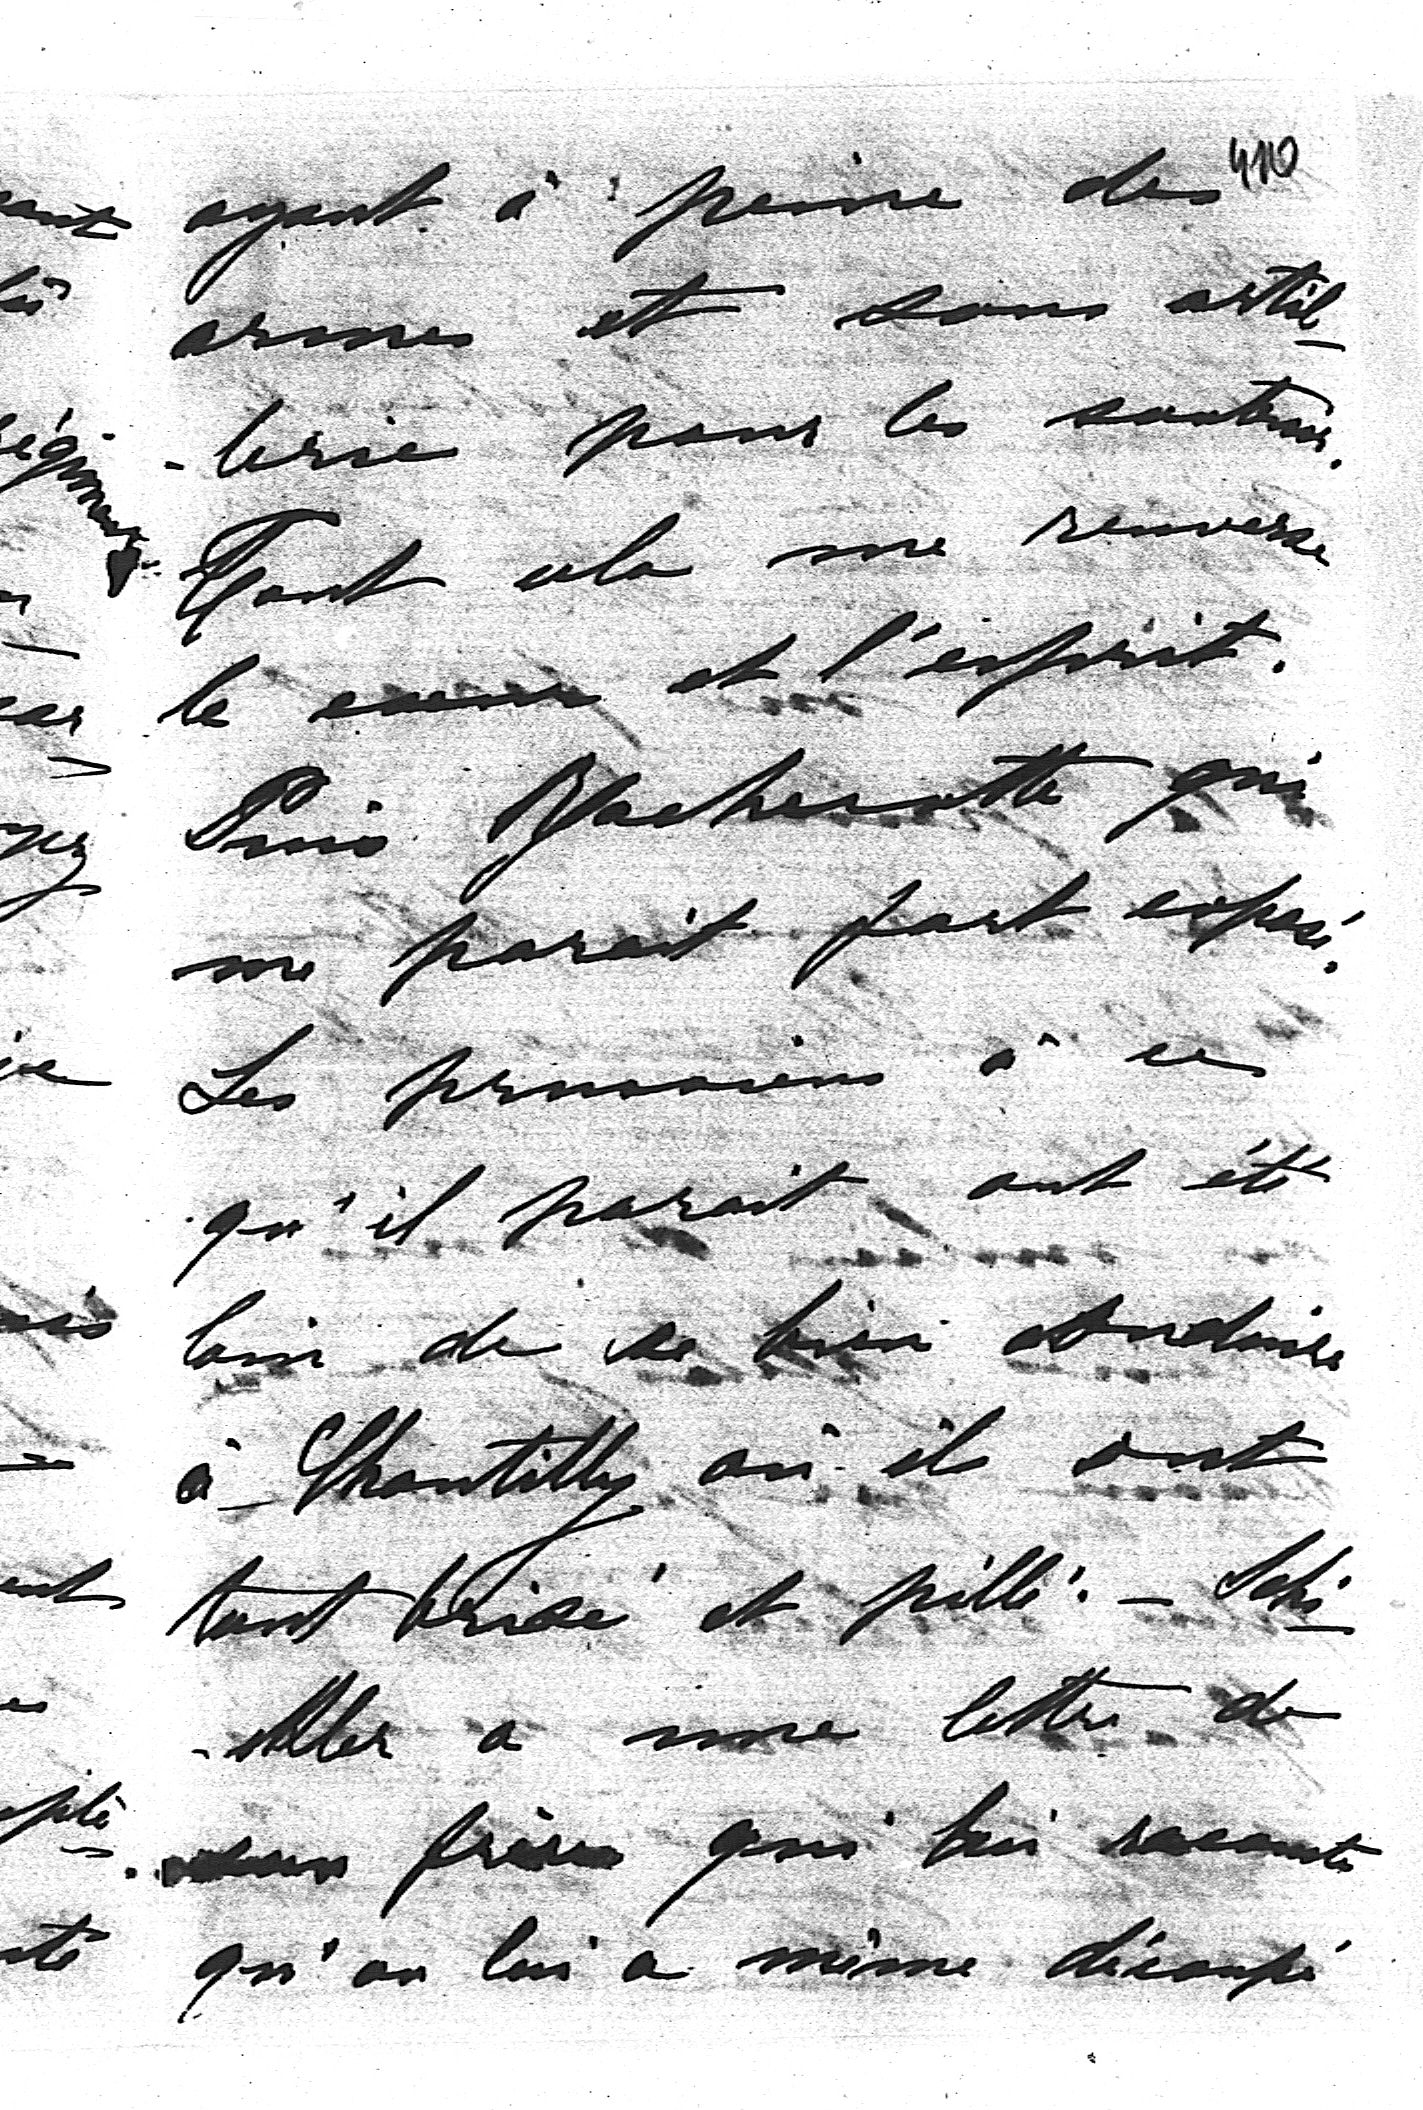 410
ayant à peine des
armes et sans artil-
-lerie pour les soutenir.
Tout cela me renverse
le coeur et l'esprit.
Puis Blacherotte qui
me parait fort exposé.
Les prussiens à ce
qu'il parait ont été
loin de se bien conduire
à Chantilly où ils ont
tout brisé et pillé. - Schi-
-ller a une lettre de
son frère qui lui raconte
qu'on lui a même découpé